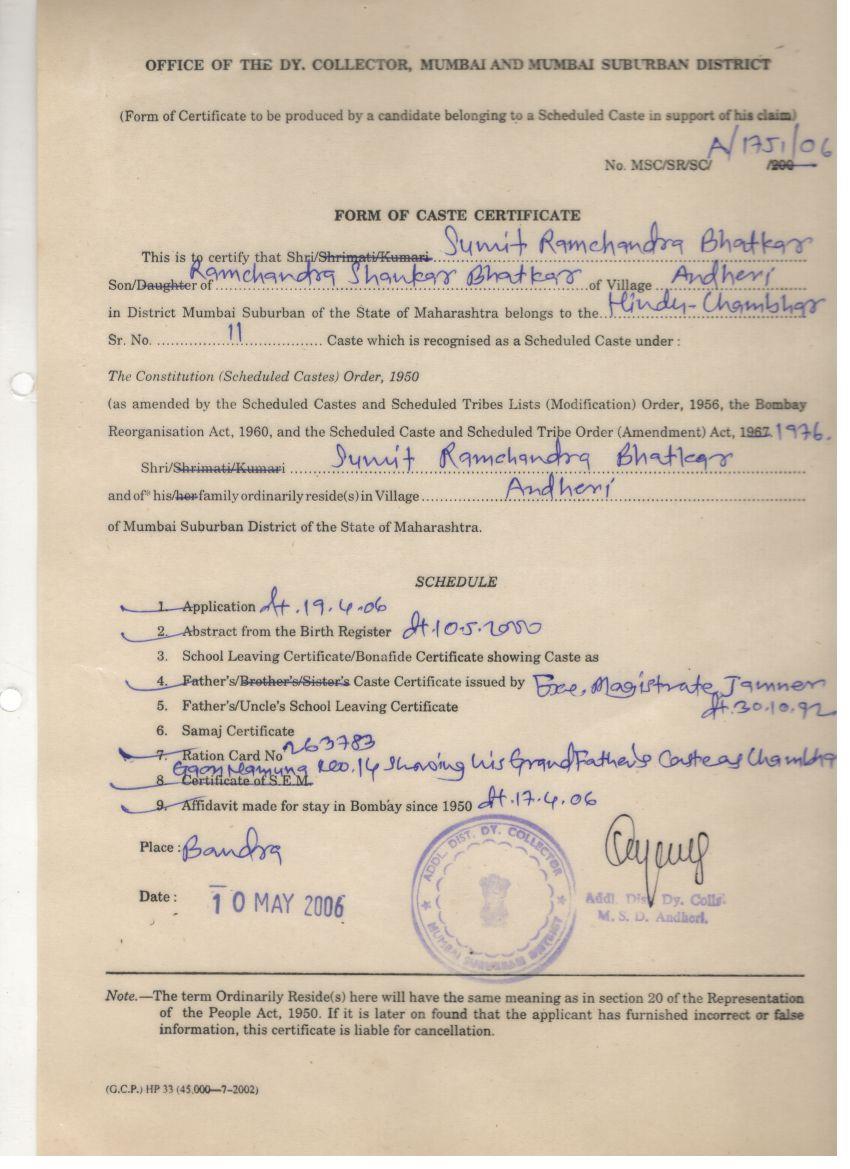 OFFICE OF THE DY. COLLECTOR, MUMBAI AND MUMBAI SUBURBAN DISTRICT
(Form of Certificate to be produced by a candidate belonging to a Scheduled Caste in support of his claim)
No. MSC/SR/SC/ A/1751/06 /200
FORM OF CASTE CERTIFICATE
This is to certify that Shri/Shrimati/Kumari Sumit Ramchandra Bhatkar
Son/Daughter of Ramchandra Shankar Bhatkar of Village Andheri
in District Mumbai Suburban of the State of Maharashtra belongs to the Hindu-Chambhar
Sr. No. 11 Caste which is recognised as a Scheduled Caste under :
The Constitution (Scheduled Castes) Order, 1950
(as amended by the Scheduled Castes and Scheduled Tribes Lists (Modification) Order, 1956, the Bombay
Reorganisation Act, 1960, and the Scheduled Caste and Scheduled Tribe Order (Amendment) Act, 1967 1976.
Shri/Shrimati/Kumari Sumit Ramchandra Bhatkar
and of* his/her family ordinarily reside(s) in Village Andheri
of Mumbai Suburban District of the State of Maharashtra.
SCHEDULE
1. Application dt. 19.4.06
2. Abstract from the Birth Register dt. 10.5.2000
3. School Leaving Certificate/Bonafide Certificate showing Caste as
4. Father's/Brother's/Sister's Caste Certificate issued by Exe. Magistrate, Jamner
5. Father's/Uncle's School Leaving Certificate dt. 30.10.92
6. Samaj Certificate
7. Ration Card No 263783
Gaon Namuna No. 14 showing his Grand Father's Caste as Chambha
8. Certificate of S.E.M.
9. Affidavit made for stay in Bombay since 1950 dt. 17.4.06
Place : Bandra
Date : 10 MAY 2006
ADDL. DIST. DY. COLLECTOR
MUMBAI SUBURBAN DISTRICT
Addl. Dist. Dy. Collr.
M. S. D. Andheri.
Note.—The term Ordinarily Reside(s) here will have the same meaning as in section 20 of the Representation
of the People Act, 1950. If it is later on found that the applicant has furnished incorrect or false
information, this certificate is liable for cancellation.
(G.C.P.) HP 33 (45,000—7-2002)